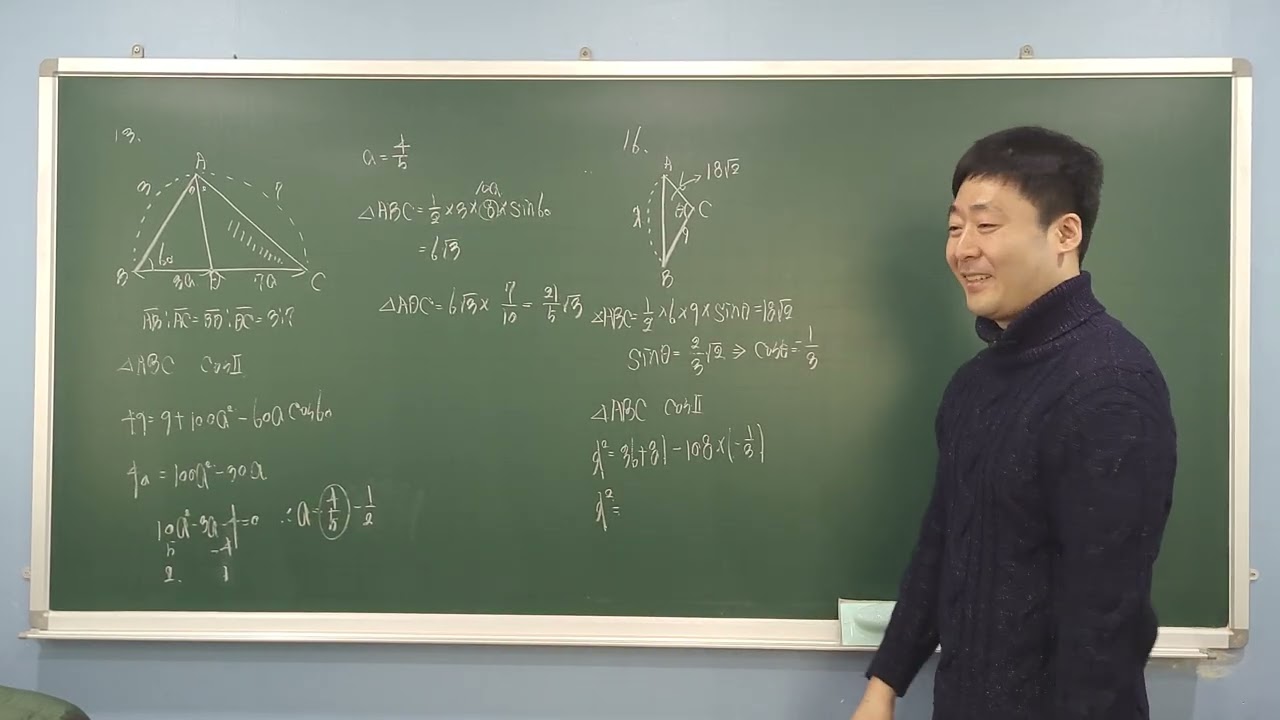 13.
A
3
7
B
60
3a
D
7a
C
AB : AC = BD : DC = 3 : 7
△ABC cosⅡ
49 = 9 + 100a² - 60a cos60
40 = 100a² - 30a
10a² - 3a - 4 = 0 ∴ a = 4/5, -1/2
5 -4
2 1
a = 4/5
10a
△ABC = 1/2 × 3 × 8 × sin60
= 6√3
△ADC = 6√3 × 7/10 = 21/5 √3
16.
A
18√2
6
x
θ
C
9
B
△ABC = 1/2 × 6 × 9 × sinθ = 18√2
sinθ = 2/3 √2 ⇒ cosθ = -1/3
△ABC cosⅡ
x² = 36 + 81 - 108 × (-1/3)
x² =